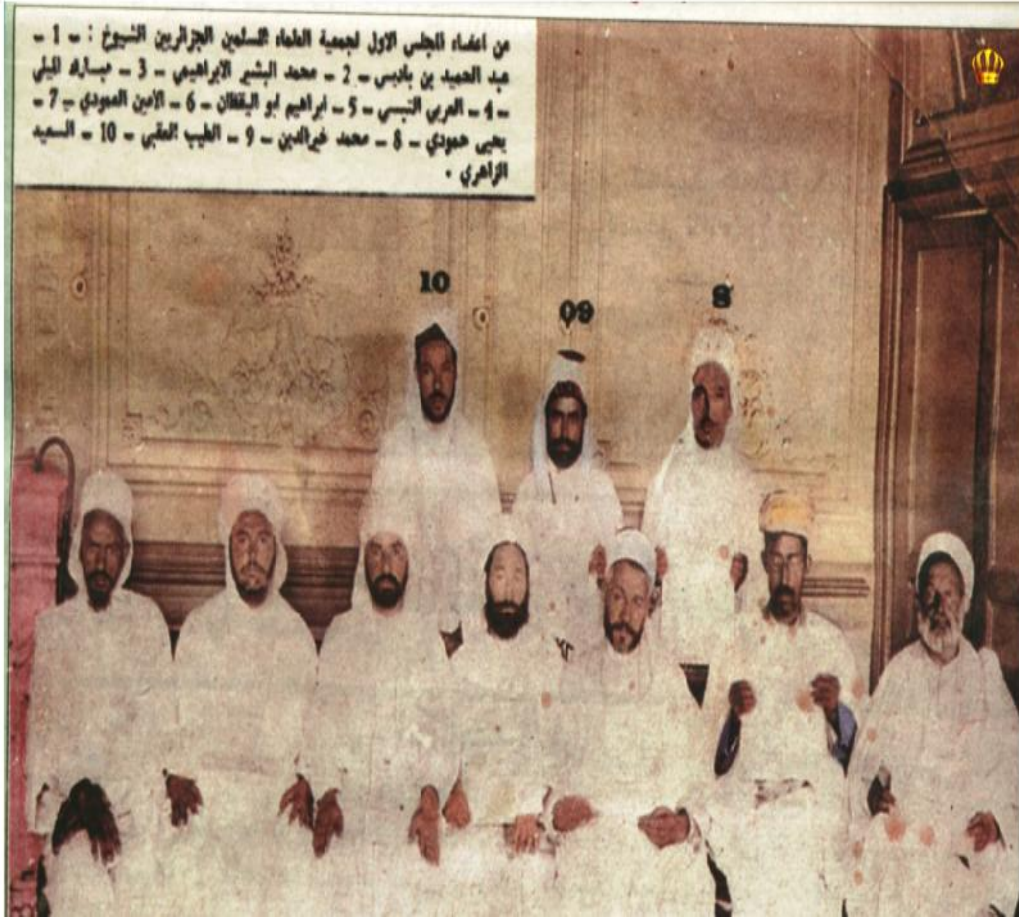 من اعضاء المجلس الاول لجمعية العلماء المسلمين الجزائريين الشيوخ : - 1 -
عبد الحميد بن باديس - 2 - محمد البشير الابراهيمي - 3 - مبارك الميلي
- 4 - العربي التبسي - 5 - ابراهيم ابو اليقظان - 6 - الأمين العمودي - 7 -
يحيى حمودي - 8 - محمد خيرالدين - 9 - الطيب العقبي - 10 - السعيد
الزاهري .
10
09
8